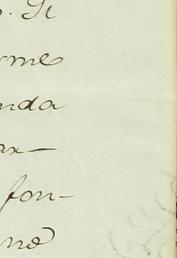 . Si
rme
nda
ax-
fon-
ne